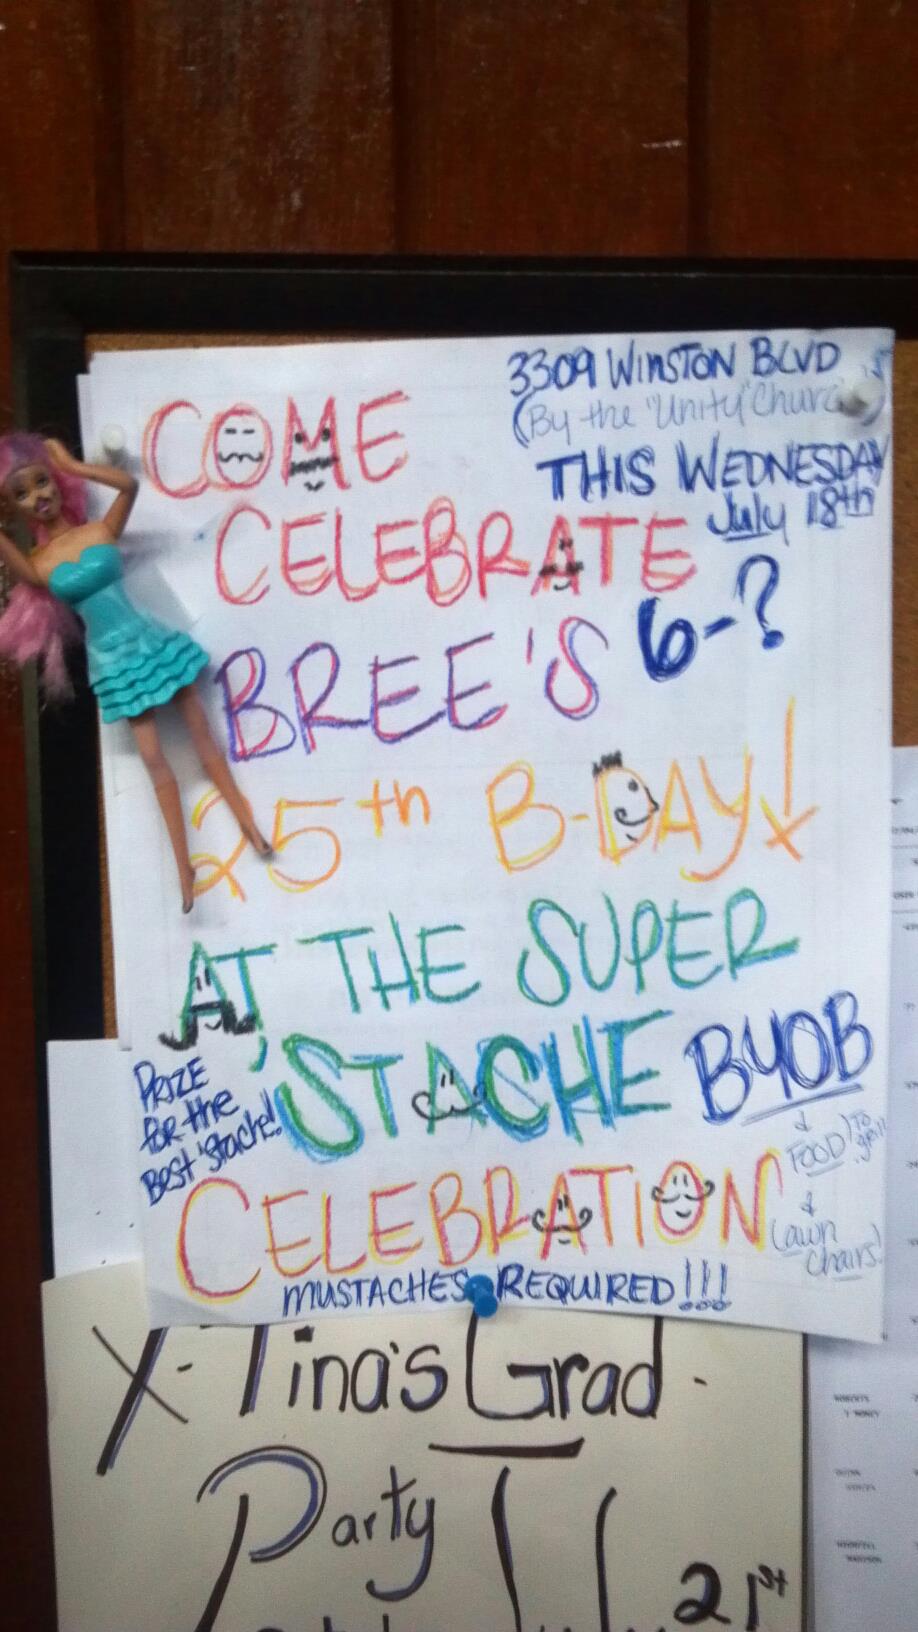 3309 WINSTON BLVD
(By the "Unity" Church)
THIS WEDNESDAY
July 18th
6-?
COME
CELEBRATE
BREE'S
25th B-DAY!
AT THE SUPER
'STACHE
CELEBRATION
BYOB
& FOOD (TO grill)
& Lawn
Chairs!
PRIZE
for the
BEST 'Stache!
MUSTACHES REQUIRED!!!
X-Tina's Grad
Party
21st